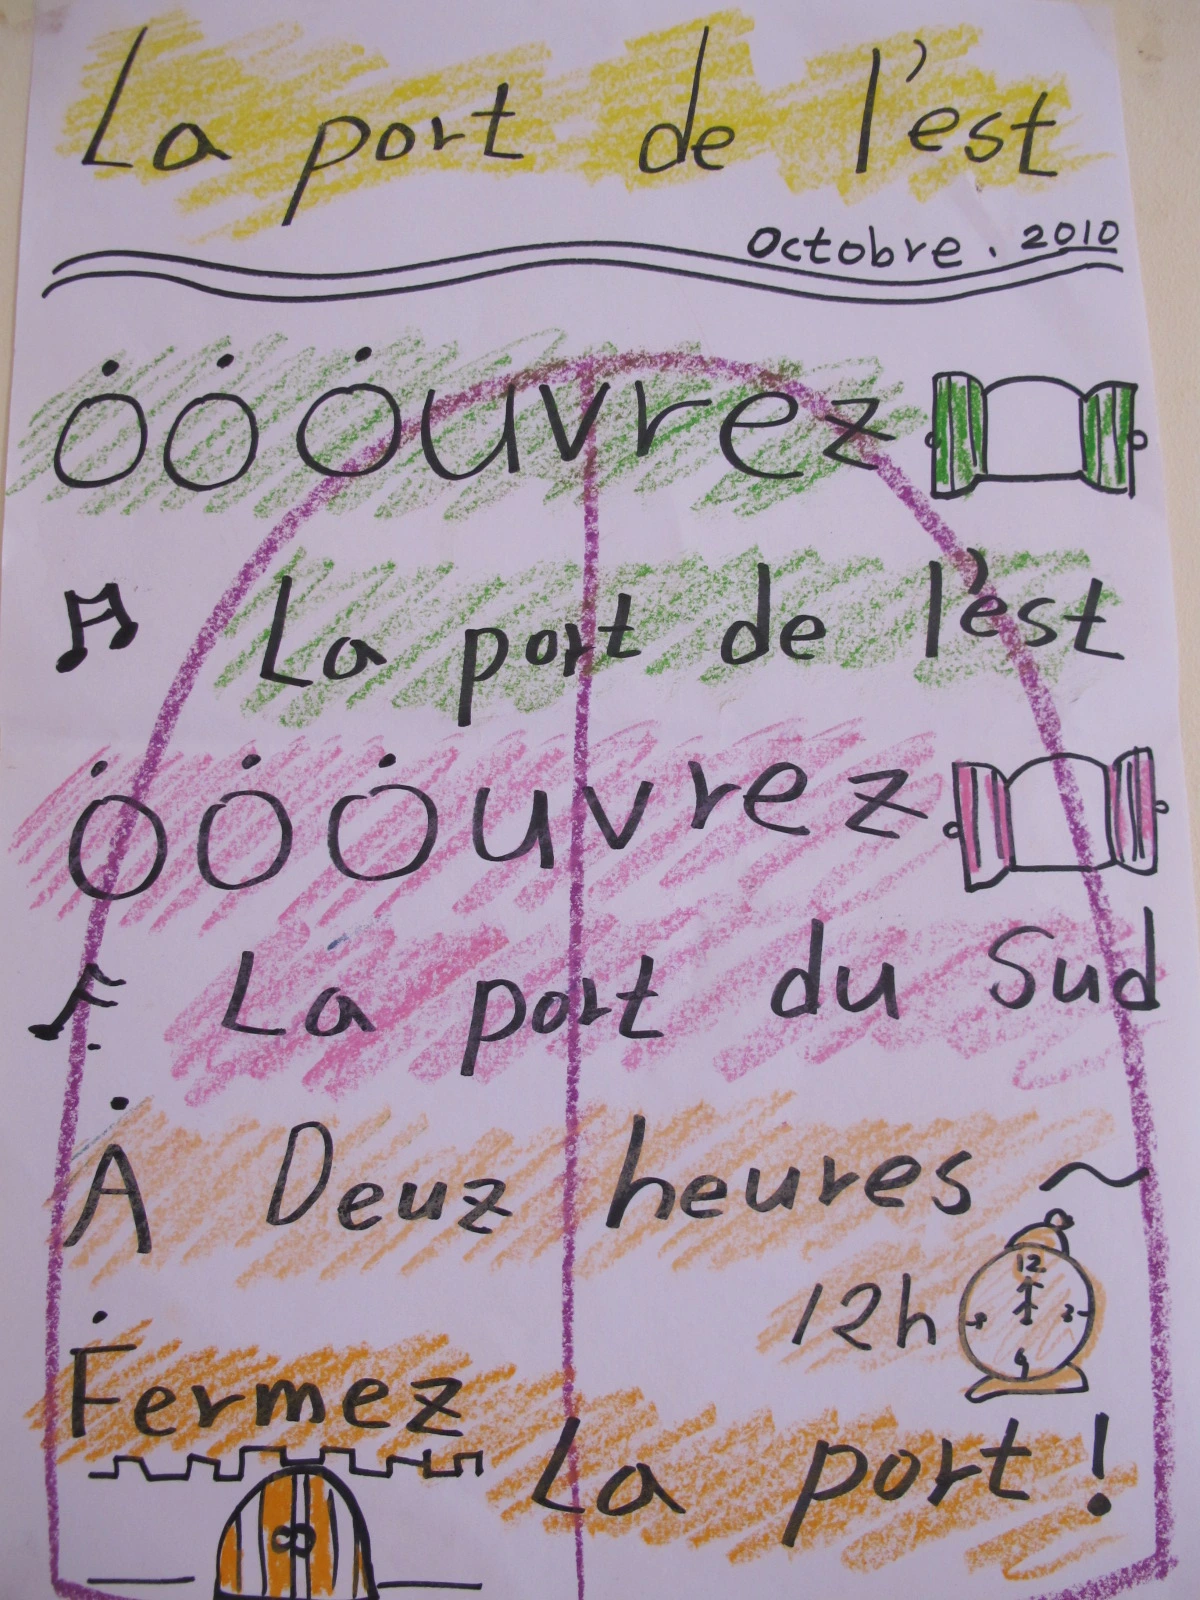 La port de l'est
Octobre. 2010
ȯ ȯ ȯuvrez
La port de l'est
ȯ ȯ ȯuvrez
La port du Sud
Ȧ Deuz heures ~
12h
Fermez
La port !